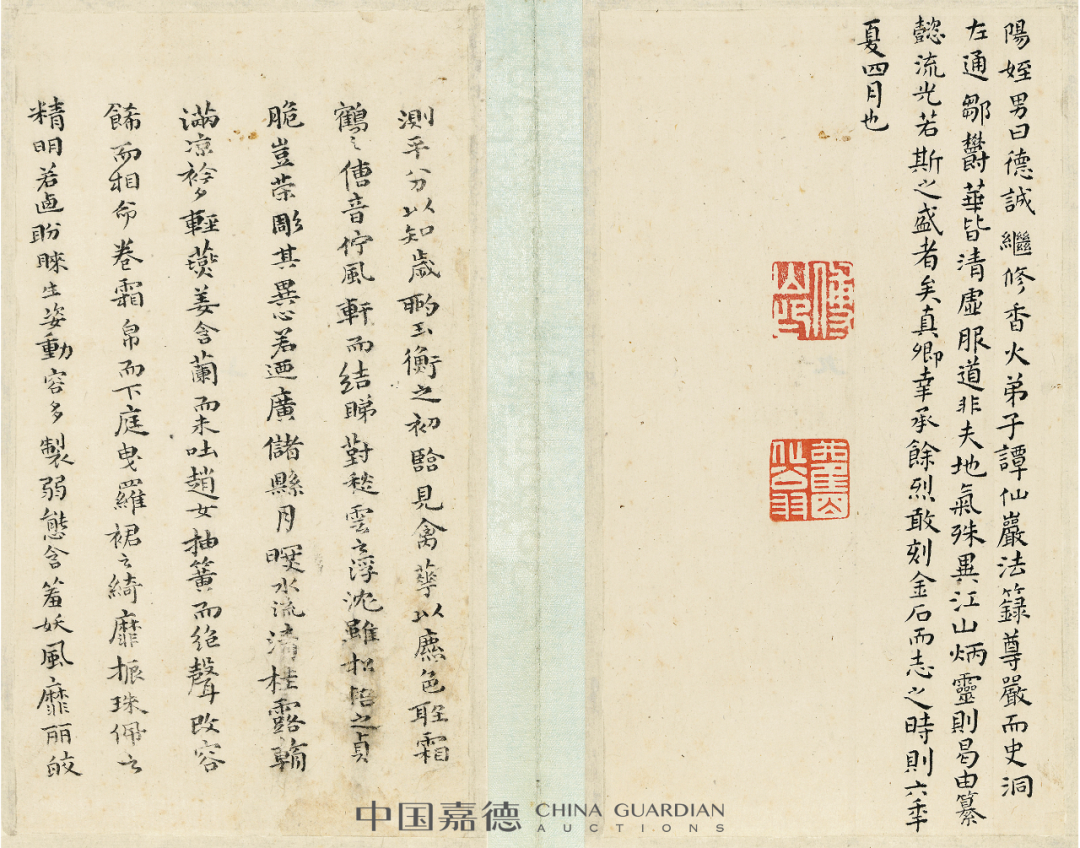 陽姪男曰德誠繼修香火弟子譚仙巖法籙尊嚴而史洞
左通鄒欝華皆清虛服道非夫地氣殊異江山炳靈則曷由纂
懿流光若斯之盛者矣真卿幸承餘烈敢刻金石而志之時則六年
夏四月也
測平分以知歲酌玉衡之初臨見禽華以麃色聽霜
鶴之傳音佇風軒而結睇對愁雲之浮沈雖松筠之貞
脆豈榮彫其異心若廼廣儲縣月暎水流清桂露朝
滿凉衿夕輕燕姜含蘭而未吐趙女抽簧而絕聲改容
餙而相命卷霜帛而下庭曳羅裙之綺靡振珠佩之
精明若廼盼睞生姿動容多製弱態含羞妖風靡丽皎
中国嘉德 CHINA GUARDIAN
AUCTIONS